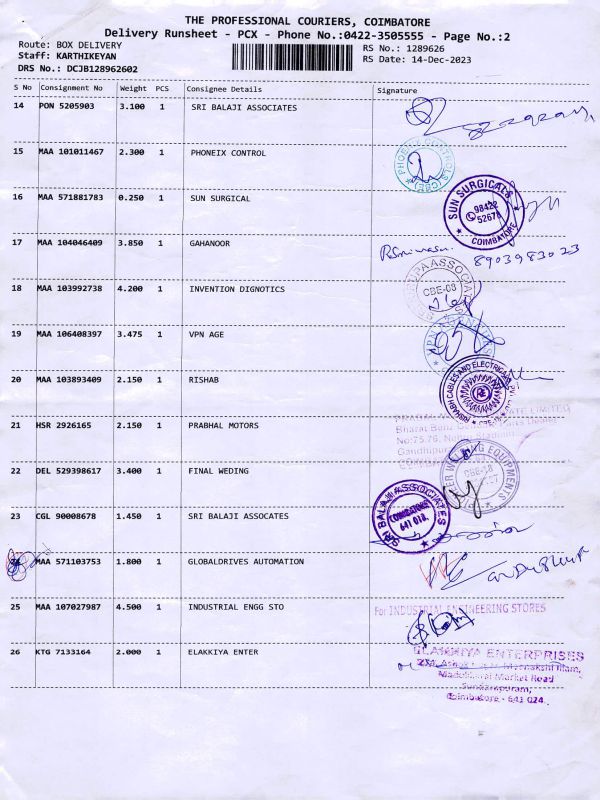 THE PROFESSIONAL COURIERS, COIMBATORE
Delivery Runsheet - PCX - Phone No.:0422-3505555 - Page No.:2
Route: BOX DELIVERY
RS No.: 1289626
Staff: KARTHIKEYAN
RS Date: 14-Dec-2023
DRS No.: DCJB128962602
S No Consignment No Weight PCS Consignee Details Signature
14 PON 5205903 3.100 1 SRI BALAJI ASSOCIATES
15 MAA 101011467 2.300 1 PHONEIX CONTROL
16 MAA 571881783 0.250 1 SUN SURGICAL
SUN SURGICALS
98422
52678
COIMBATORE
17 MAA 104046409 3.850 1 GAHANOOR
8903983023
18 MAA 103992738 4.200 1 INVENTION DIGNOTICS
CBE-08
19 MAA 106408397 3.475 1 VPN AGE
20 MAA 103893409 2.150 1 RISHAB
RISHABH CABLES AND ELECTRICALS
21 HSR 2926165 2.150 1 PRABHAL MOTORS
22 DEL 529398617 3.400 1 FINAL WEDING
CBE-18
23 CGL 90008678 1.450 1 SRI BALAJI ASSOCATES
SRI BALAJI ASSOCIATES
COIMBATORE
641 018.
MAA 571103753 1.800 1 GLOBALDRIVES AUTOMATION
25 MAA 107027987 4.500 1 INDUSTRIAL ENGG STO
For INDUSTRIAL ENGINEERING STORES
26 KTG 7133164 2.000 1 ELAKKIYA ENTER
ELAKKIYA ENTERPRISES
Market Road
Sundarapuram,
Coimbatore - 641 024.